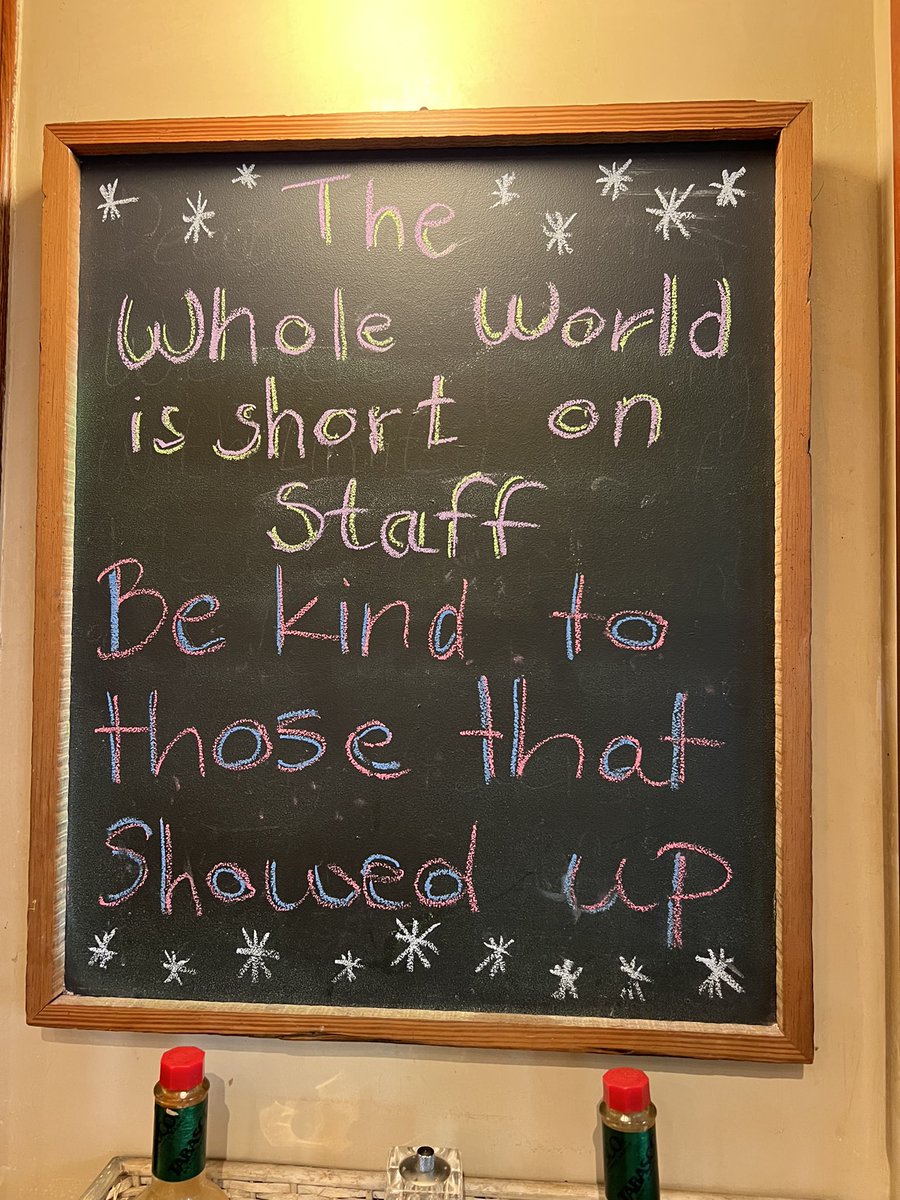 The
Whole World
is short on
Staff
Be kind to
those that
Showed up
TABAS